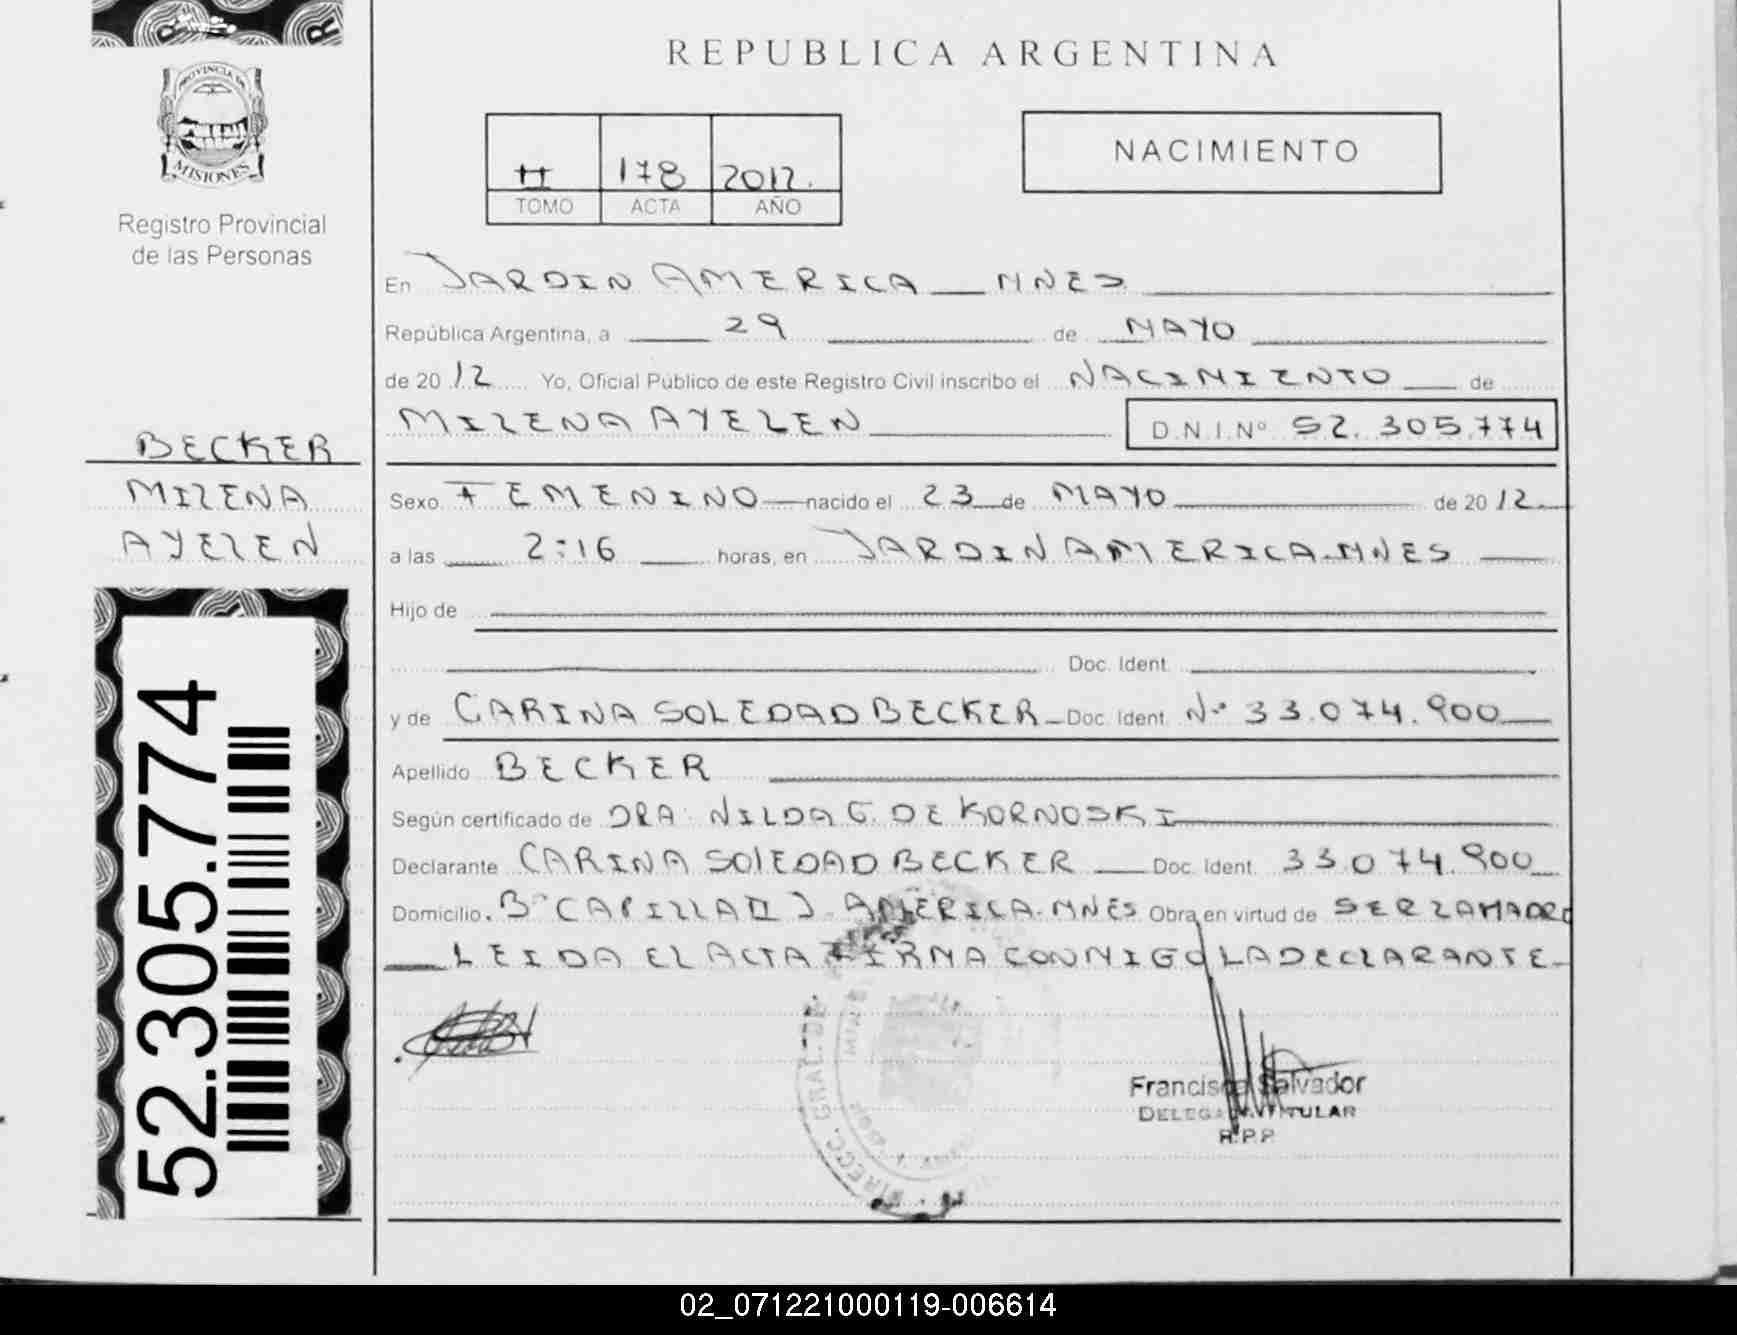 PROVINCIA DE
MISIONES
Registro Provincial
de las Personas
BECKER
MILENA
AYELEN
52.305.774
REPUBLICA ARGENTINA
II 178 2012.
TOMO ACTA AÑO
NACIMIENTO
En JARDIN AMERICA MNES
República Argentina, a 29 de MAYO
de 2012 Yo, Oficial Público de este Registro Civil inscribo el NACIMIENTO de
MILENA AYELEN D.N.I.Nº 52.305.774
Sexo FEMENINO nacido el 23 de MAYO de 2012.
a las 2:16 horas, en JARDIN AMERICA.MNES
Hijo de
Doc. Ident.
y de CARINA SOLEDAD BECKER Doc. Ident. Nº 33.074.900
Apellido BECKER
Según certificado de DRA. NILDA G. DE KORNOSKI
Declarante CARINA SOLEDAD BECKER Doc. Ident. 33.074.900
Domicilio. Bº CAPILLA II J. AMERICA. MNES Obra en virtud de SER LA MADRE
LEIDA EL ACTA FIRMA CONMIGO LA DECLARANTE
DIRECC. GRAL. DE
Francisco Salvador
DELEGADO TITULAR
R.P.P.
02_071221000119-006614